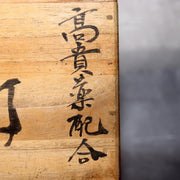 高貴薬配合